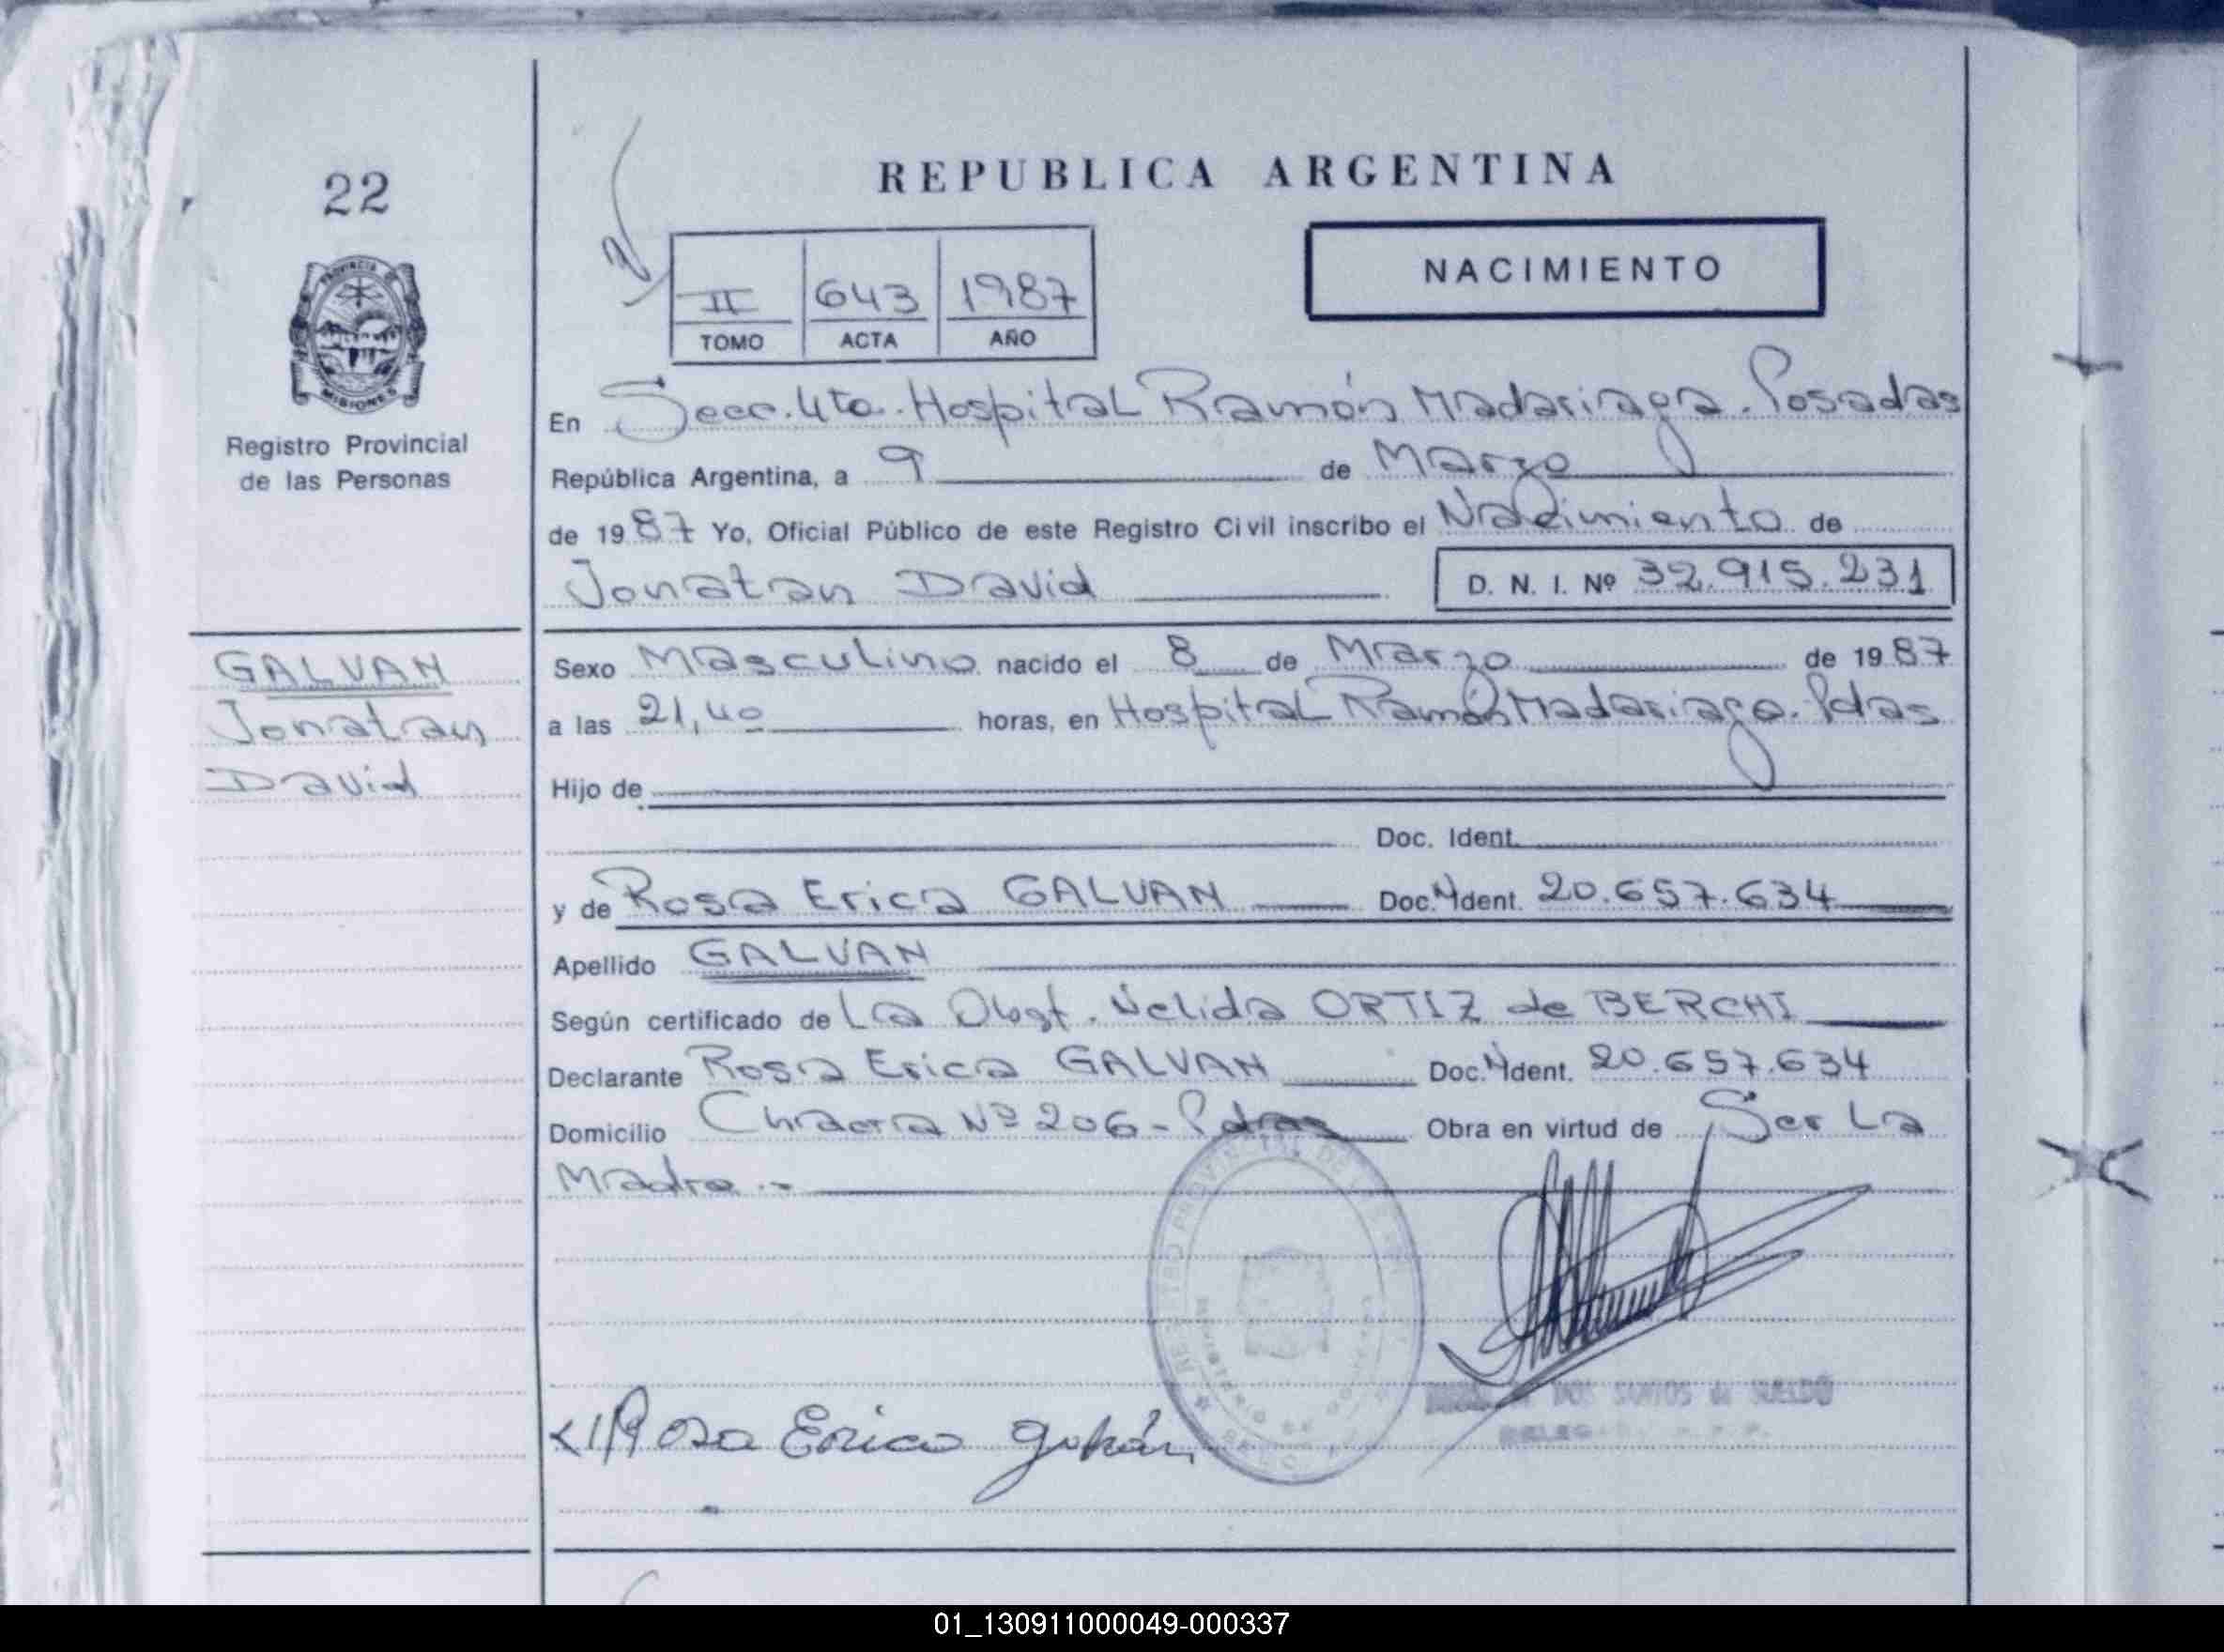 22
PROVINCIA DE
MISIONES
Registro Provincial
de las Personas
GALVAN
Jonatan
David
REPUBLICA ARGENTINA
II 643 1987
TOMO ACTA AÑO
NACIMIENTO
En Secc. 4ta. Hospital Ramón Madariaga. Posadas
República Argentina, a 9 de Marzo
de 1987 Yo, Oficial Público de este Registro Civil inscribo el Nacimiento de
Jonatan David D. N. I. Nº 32.915.231
Sexo Masculino nacido el 8 de Marzo de 1987
a las 21,40 horas, en Hospital Ramón Madariaga. Pdas
Hijo de
Doc. Ident.
y de Rosa Erica GALVAN Doc. Ident. 20.657.634
Apellido GALVAN
Según certificado de La Obst. Nelida ORTIZ de BERCHI
Declarante Rosa Erica GALVAN Doc. Ident. 20.657.634
Domicilio Chacra Nº 206 - Pdas Obra en virtud de Ser La
Madre.-
REGISTRO PROVINCIAL DE LAS
DOS SANTOS de SUELDO
Rosa Erica Galván
01_130911000049-000337